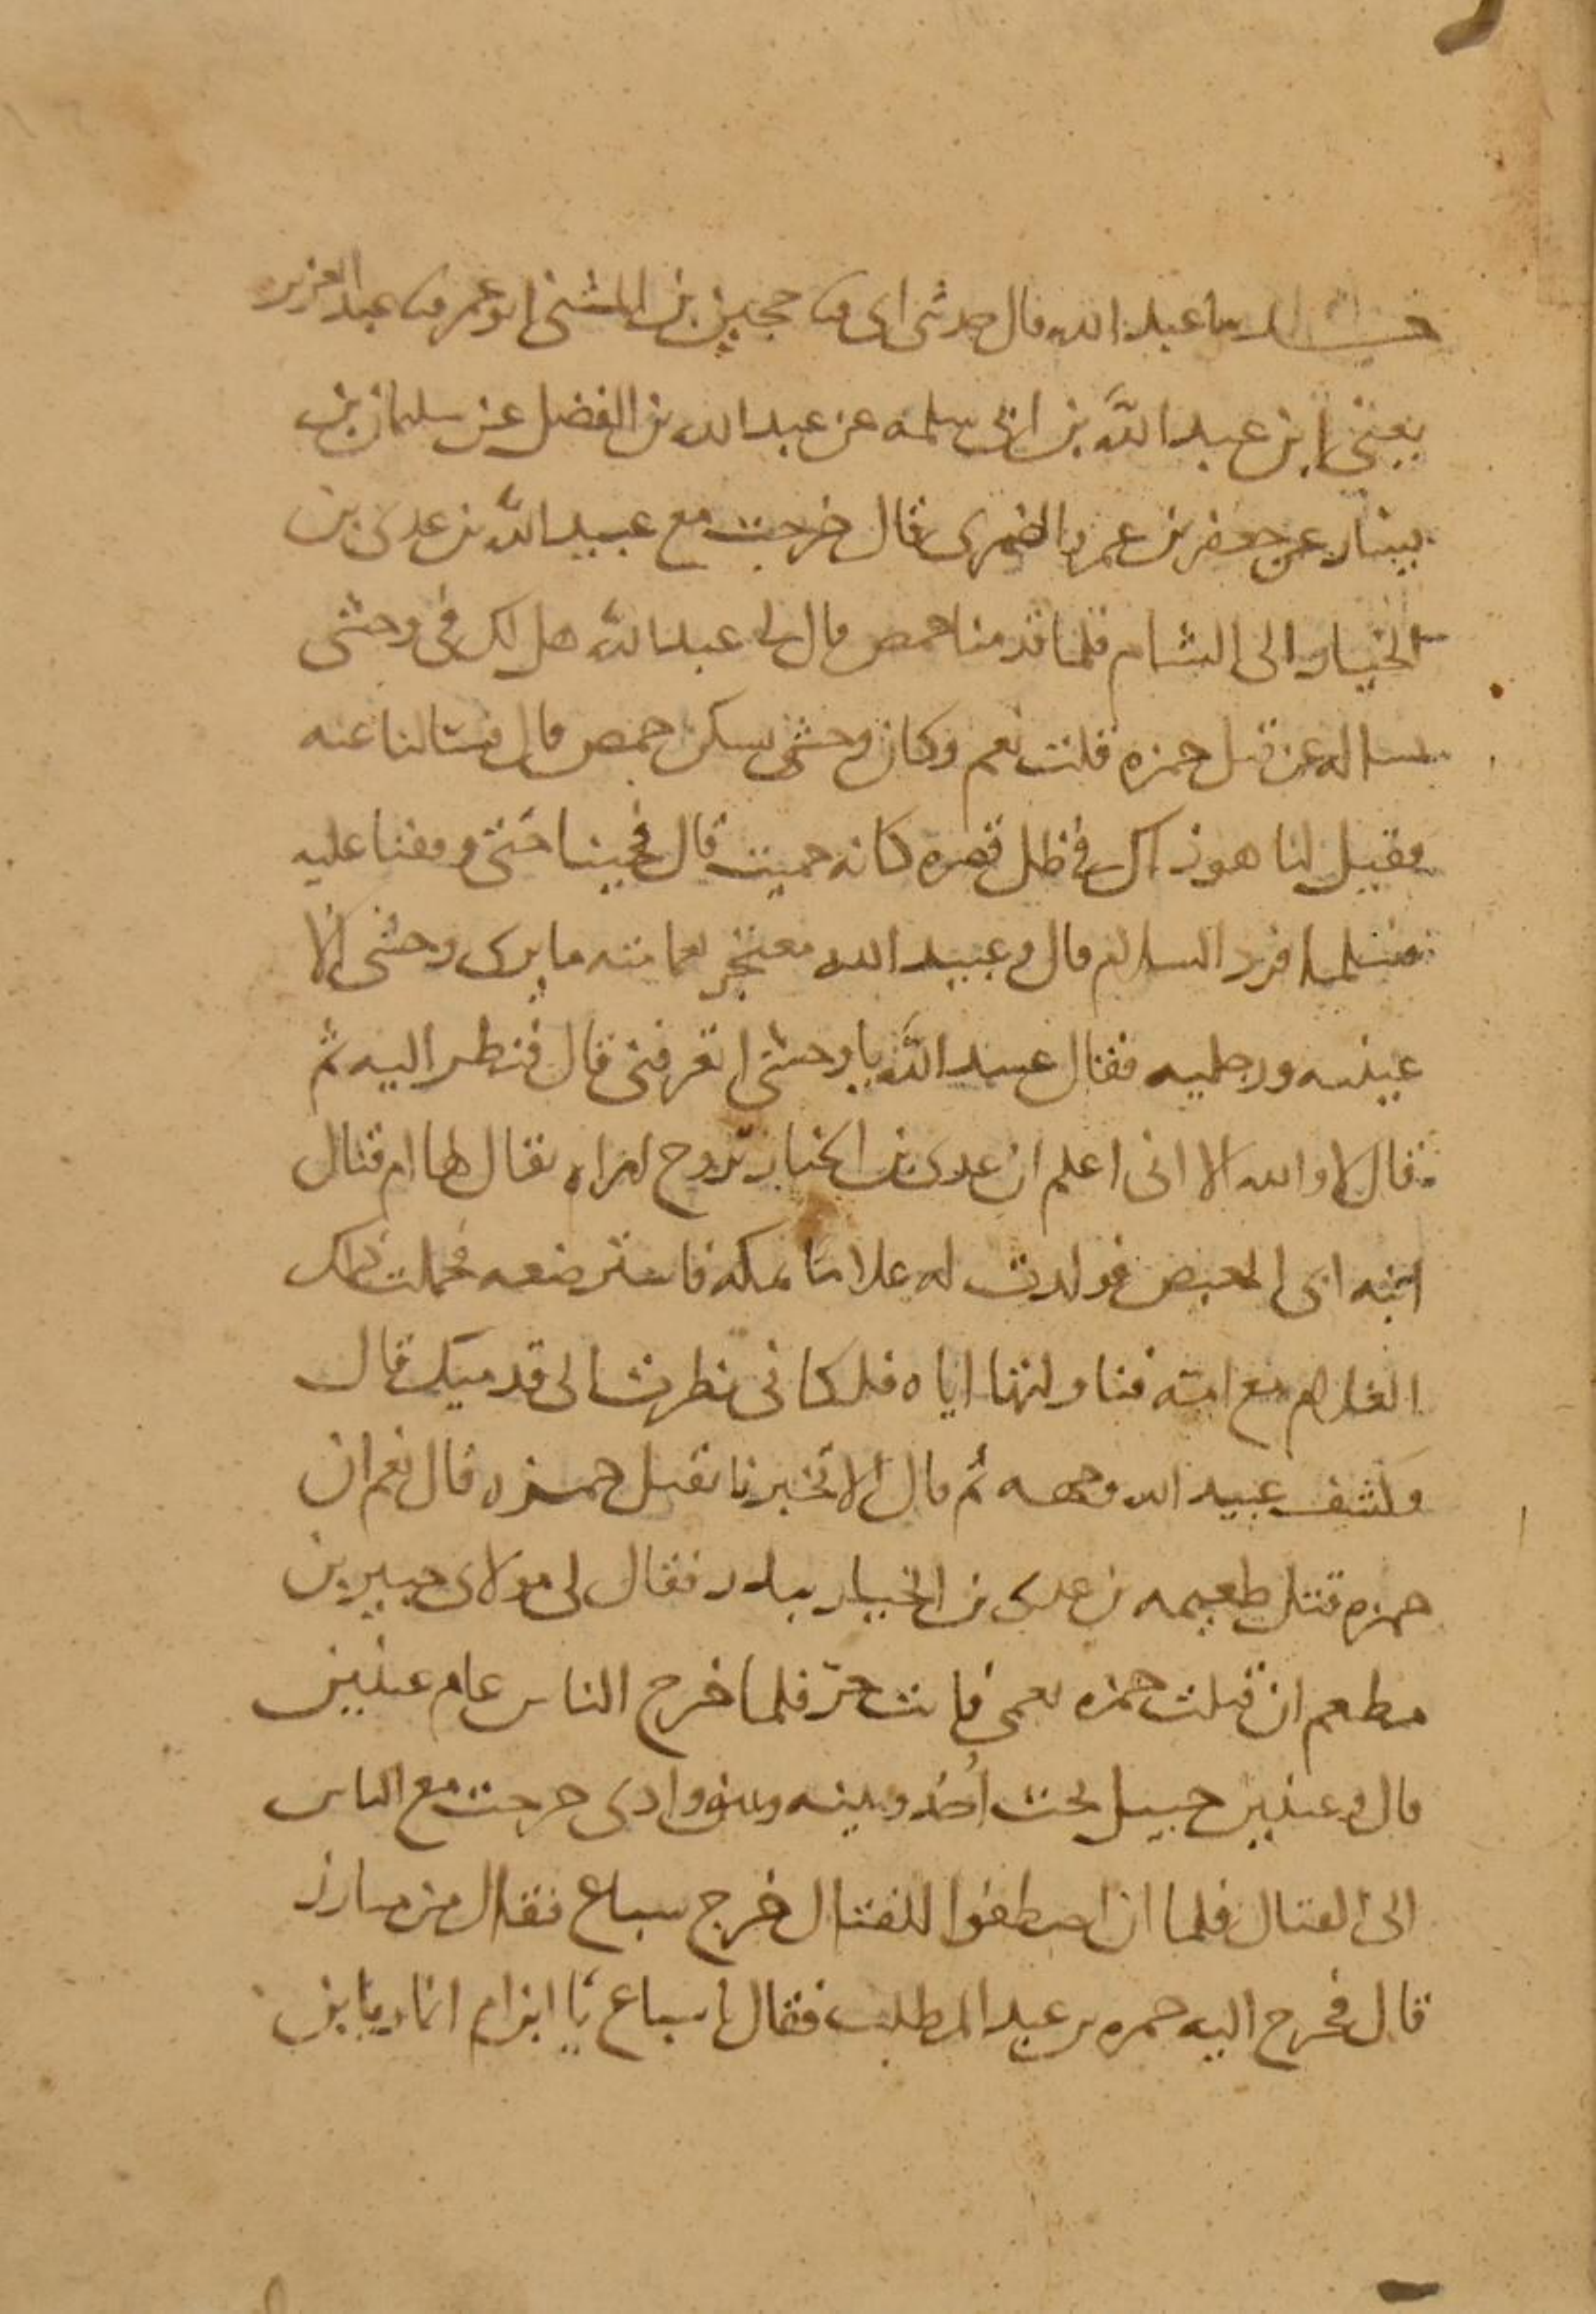 حدثنا عبد الله قال حدثني ابي ثنا حجين بن المثنى ابو عمر ثنا عبد العزيز
يعني ابن عبد الله بن ابي سلمه عن عبد الله بن الفضل عن سليمان بن
يسار عن جعفر بن عمرو الضمرى قال خرجت مع عبيد الله بن عدى بن
الخيار الى الشام فلما قدمنا حمص قال لي عبيد الله هل لك في وحشى
نساله عن قتل حمزه قلت نعم وكان وحشي يسكن حمص قال فسالنا عنه
فقيل لنا هو ذاك في ظل قصره كانه حميت قال فجينا حتى وقفنا عليه
فسلمنا فرد السلام قال وعبيد الله معتجر بعمامته ما يرى وحشي الا
عينيه ورجليه فقال عبيد الله يا وحشي اتعرفني قال فنظر اليه ثم
قال لا والله الا اني اعلم ان عدى بن الخيار تزوج امراه يقال لها ام قتال
ابنه ابى العيص فولدت له غلاما بمكه فاسترضعه فحملت ذلك
الغلام مع امه فناولتها اياه فلكاني نظرت الى قدميك قال
فكشف عبيد الله وجهه ثم قال الا تخبرنا بقتل حمزه قال نعم ان
حمزه قتل طعيمه بن عدى بن الخيار ببدر فقال لي مولاى جبير بن
مطعم ان قتلت حمزه بعمي فانت حر فلما خرج الناس عام عينين
قال وعينين جبيل تحت احد وبينه وبينه وادى خرجت مع الناس
الى القتال فلما ان اصطفوا للقتال خرج سباع فقال من مبارز
قال فخرج اليه حمزه بن عبد المطلب فقال يا سباع يا ابن ام انمار يا بن